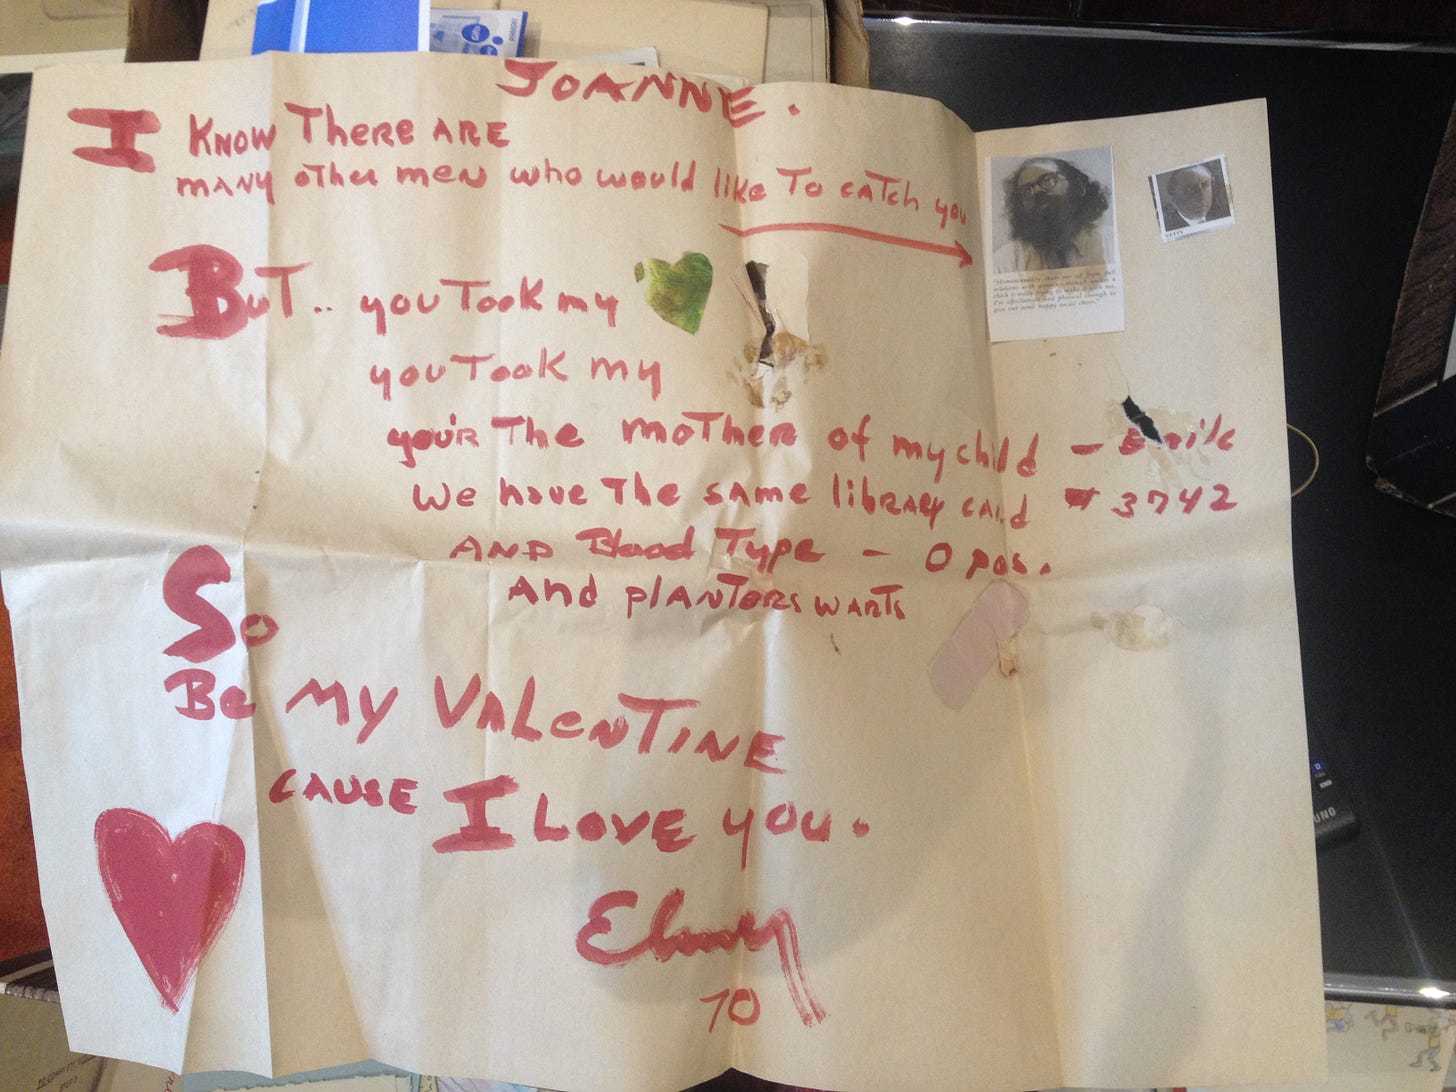 JOANNE.
I KNOW THERE ARE
MANY other men who would like To catch you
BUT.. you Took my
you Took my
you'r The moTher of my child -
We have The same library card # 3742
AND Blood Type - O pos.
And plANTORS WARTS
So
Be My VALENTINE
CAUSE I LOVE you.
70
GETTY
UNG